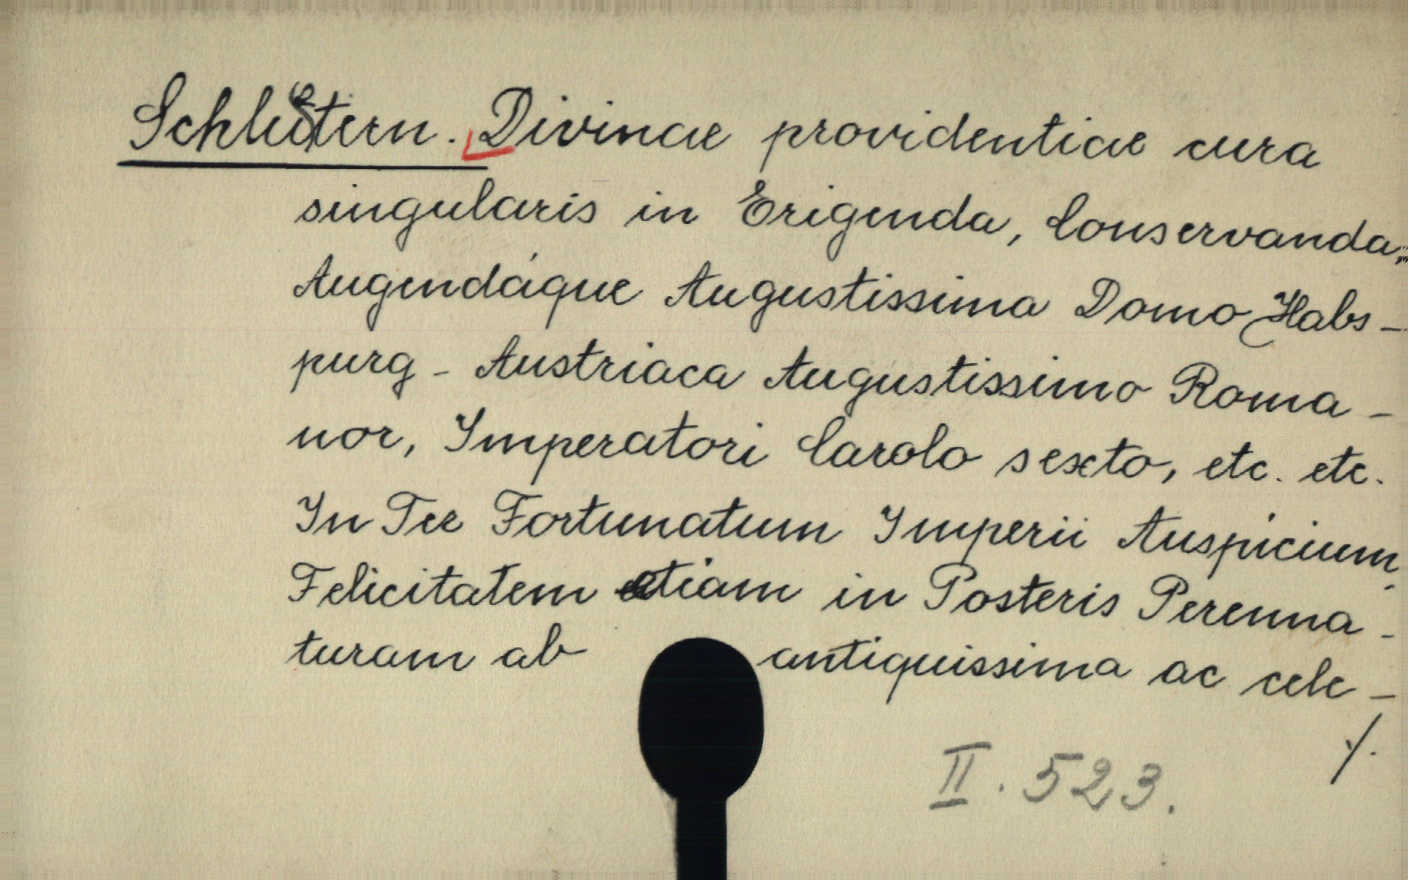 Schlestern. Divinae providentiae cura
singularis in Erigenda, Conservanda,
Augendáque Augustissima Domo Habs-
purg- Austriaca Augustissimo Roma-
nor, Imperatori Carolo sexto, etc. etc.
In Ter Fortunatum Imperii Auspicium,
Felicitatem etiam in Posteris Perenna-
turam ab antiquissima ac cele-
./.
II. 523.